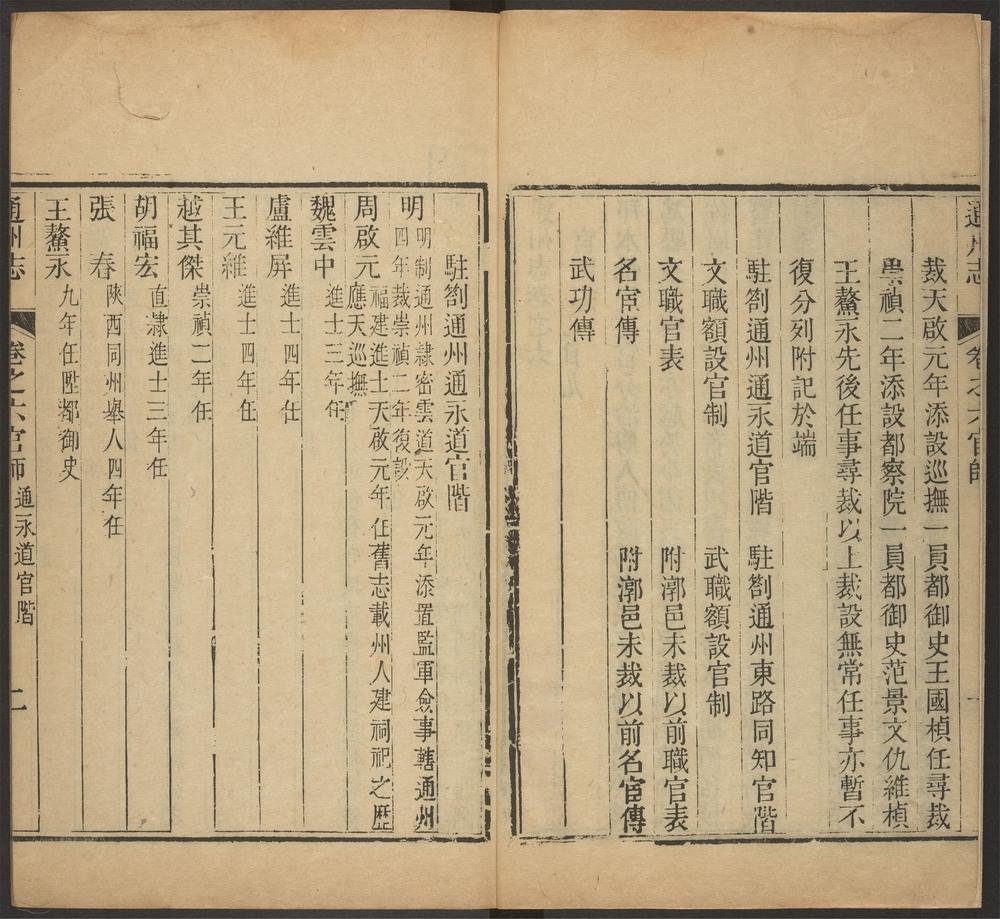 通州志 卷之六官師 一
裁天啟元年添設巡撫一員都御史王國楨任尋裁
崇禎二年添設都察院一員都御史范景文仇維楨
王鰲永先後任事尋裁以上裁設無常任事亦暫不
復分列附記於端
駐劄通州通永道官階 駐劄通州東路同知官階
文職額設官制 武職額設官制
文職官表 附漷邑未裁以前職官表
名宦傳 附漷邑未裁以前名宦傳
武功傳
駐劄通州通永道官階
明 明制通州隸密雲道天啟元年添置監軍僉事轄通州
四年裁崇禎二年復設
周啟元 福建進士天啟元年任舊志載州人建祠祀之歷
應天巡撫
魏雲中 進士三年任
盧維屏 進士四年任
王元維 進士四年任
越其傑 崇禎二年任
胡福宏 直隸進士三年任
張 春 陝西同州舉人四年任
王鰲永 九年任陞都御史
通州志 卷之六官師 通永道官階 二